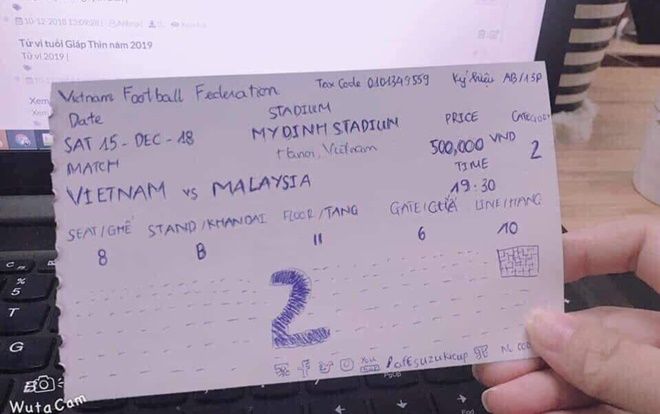 10-12-2018 13:09:28
Tử vi tuổi Giáp Thìn năm 2019
Tử vi 2019 |
Xem
Vietnam Football Federation Tax Code 0101349559 Ký hiệu AB/15P
Date STADIUM PRICE CATEGORY
SAT 15 - DEC - 18 MY DINH STADIUM 500,000 VND 2
MATCH Hanoi, Vietnam TIME
VIETNAM vs MALAYSIA 19.30
SEAT/GHẾ STAND/KHANDAI FLOOR/TANG GATE/CỬA LINE/HANG
8 B II 6 10
2
f You #affsuzukicup
%
5
T
G
WutaCam